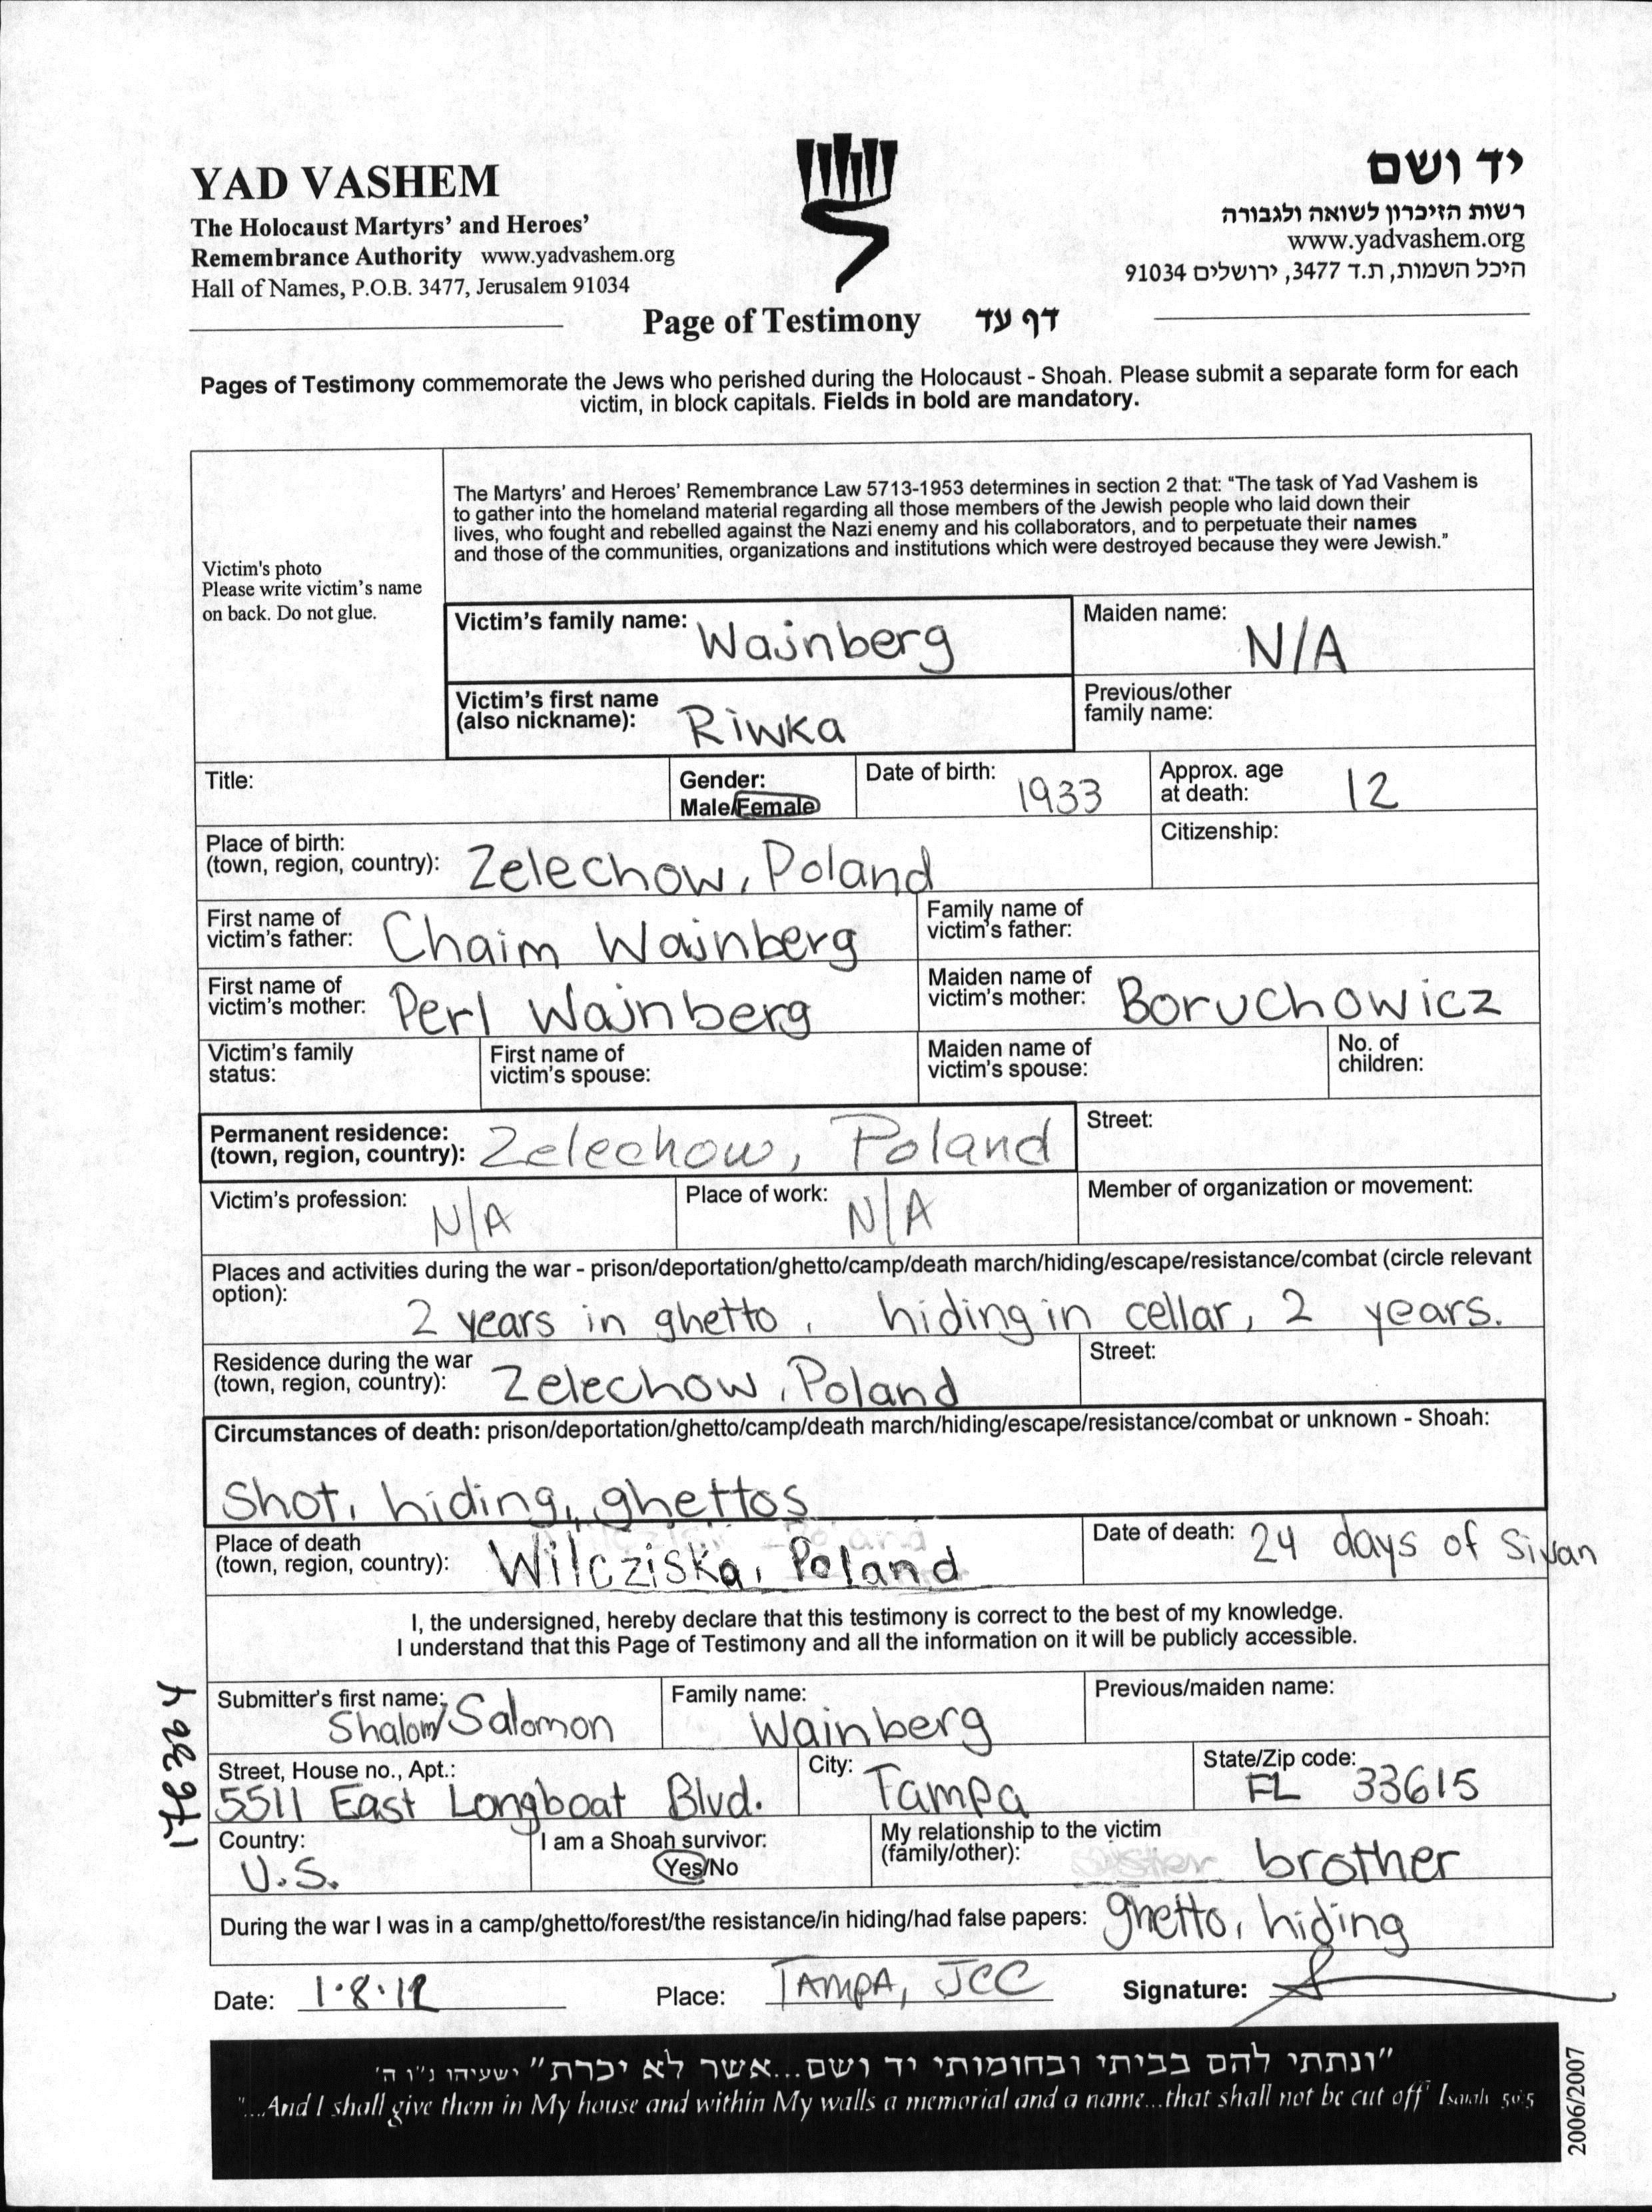 YAD VASHEM
The Holocaust Martyrs' and Heroes'
Remembrance Authority www.yadvashem.org
Hall of Names, P.O.B. 3477, Jerusalem 91034
יד ושם
רשות הזיכרון לשואה ולגבורה
www.yadvashem.org
היכל השמות, ת.ד 3477, ירושלים 91034
Page of Testimony דף עד
Pages of Testimony commemorate the Jews who perished during the Holocaust - Shoah. Please submit a separate form for each
victim, in block capitals. Fields in bold are mandatory.
Victim's photo
Please write victim's name
on back. Do not glue.
The Martyrs' and Heroes' Remembrance Law 5713-1953 determines in section 2 that: "The task of Yad Vashem is
to gather into the homeland material regarding all those members of the Jewish people who laid down their
lives, who fought and rebelled against the Nazi enemy and his collaborators, and to perpetuate their names
and those of the communities, organizations and institutions which were destroyed because they were Jewish."
Victim's family name: Wajnberg
Maiden name: N/A
Victim's first name
(also nickname): Riwka
Previous/other
family name:
Title:
Gender:
Male/Female
Date of birth: 1933
Approx. age
at death: 12
Place of birth:
(town, region, country): Zelechow, Poland
Citizenship:
First name of
victim's father: Chaim Wajnberg
Family name of
victim's father:
First name of
victim's mother: Perl Wajnberg
Maiden name of
victim's mother: Boruchowicz
Victim's family
status:
First name of
victim's spouse:
Maiden name of
victim's spouse:
No. of
children:
Permanent residence:
(town, region, country): Zelechow, Poland
Street:
Victim's profession: N/A
Place of work: N/A
Member of organization or movement:
Places and activities during the war - prison/deportation/ghetto/camp/death march/hiding/escape/resistance/combat (circle relevant
option):
2 years in ghetto, hiding in cellar, 2 years.
Residence during the war
(town, region, country): Zelechow, Poland
Street:
Circumstances of death: prison/deportation/ghetto/camp/death march/hiding/escape/resistance/combat or unknown - Shoah:
Shot, hiding, ghettos
Place of death
(town, region, country): Wilcziska, Poland
Date of death: 24 days of Sivan
I, the undersigned, hereby declare that this testimony is correct to the best of my knowledge.
I understand that this Page of Testimony and all the information on it will be publicly accessible.
Submitter's first name: Shalom/Salomon
Family name: Wainberg
Previous/maiden name:
Street, House no., Apt.: 5511 East Longboat Blvd.
City: Tampa
State/Zip code: FL 33615
Country: U.S.
I am a Shoah survivor:
Yes/No
My relationship to the victim
(family/other): brother
During the war I was in a camp/ghetto/forest/the resistance/in hiding/had false papers: ghetto, hiding
Date: 1.8.12
Place: TAMPA, JCC
Signature:
"ונתתי להם בביתי ובחומותי יד ושם...אשר לא יכרת" ישעיהו נ"ו ה'
"...And I shall give them in My house and within My walls a memorial and a name...that shall not be cut off" Isaiah 56:5
2006/2007